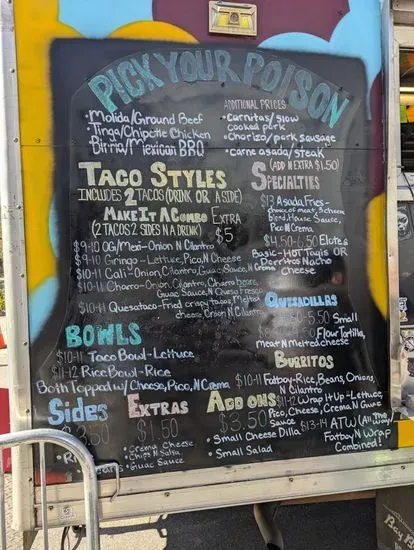 PICK YOUR POISON
• Molida/Ground Beef
• Tinga/Chipotle Chicken
• Birria/Mexican BBQ
ADDITIONAL PRICES
• Carnitas/slow
cooked pork
• Chorizo/pork sausage
• carne asada/steak
(ADD N EXTRA $1.50)
TACO STYLES
INCLUDES 2 TACOS (DRINK OR A SIDE)
MAKE IT A COMBO EXTRA
(2 TACOS 2 SIDES N A DRINK) $5
$9-10 OG/Mexi-Onion N Cilantro
$9-10 Gringo-Lettuce, Pico, N Cheese
$10-11 Cali-Onion, Cilantro, Guac Sauce, N Crema
$10-11 Charro-Onion, Cilantro, Charro beans,
Guac Sauce, N Queso Fresco
$10-11 Quesataco-Fried crispy tacos, Melted
cheese, Onion N Cilantro
SPECIALTIES
$13 Asada Fries-
choice of meat, 3 cheese
Blend, House Sauce,
Pico, N Crema
$4.50-6.50 Elotes
Basic-HOT Taqis OR
Dorritos Nacho
cheese
QUESADILLAS
-5.50 Small
Flour Tortilla,
Meat N melted cheese
BOWLS
$10-11 Taco Bowl-Lettuce,
$11-12 Rice Bowl-Rice
Both Topped w/Cheese, Pico, N Crema
BURRITOS
$10-11 Fatboy-Rice, Beans, Onions,
N Cilantro
$11-12 Wrap it Up-Lettuce,
Pico, Cheese, Crema, N Guac
Sauce
$13-14 ATW (All The Way)
Fatboy N Wrap
Combined!
Sides
3.50
EXTRAS
$1.50
• Crema Cheese
• Chips N Salsa
• Guac Sauce
ADD ONS
$3.50
• Small Cheese Dilla
• Small Salad